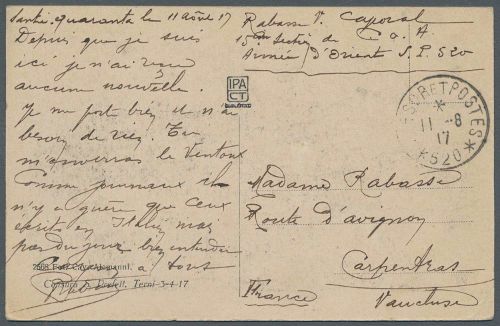 Santi-quaranta le 11 août 17
Depuis que je suis
ici je n'ai reçu
aucune nouvelle.
Je me port bien et n'ai
besoin de rien. Tu
m'enverras le Ventoux
Comme journaux il
n'y a guère que ceux
écrit en Italien mais
pas du jour bien entendu
à tous
Rabasse V. Caporal
15me Section de C.O.A
Armée d'Orient S.P. 520
IPA
CT
TRESOR ET POSTES
11 -8
17
*520*
Madame Rabasse
Route d'avignon
Carpentras
Vaucluse
France
Terni-3-4-17